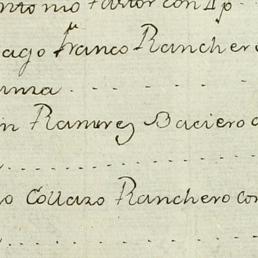 ntonio Pastor con Ip.
ago Franco Ranchero

n Ramirez Baciero
o Collazo Ranchero con